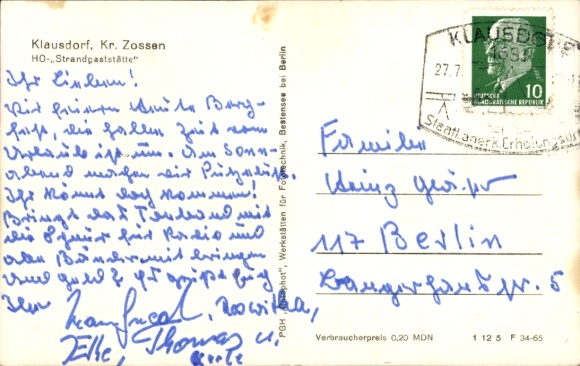 Klausdorf, Kr. Zossen
HO-„Strandgaststätte"
Ihr Lieben!
Wir feiern heute Berg-
fest, die halbe Zeit vom
Urlaub ist um. Am Sonn-
abend machen wir
Ihr könnt doch kommen!
Bringt das Tonband mit
die Schnur für Radio und
alle Bänder mit bringen
und Geld? Es grüßt Euch
Ihre Manfred, Roswitha,
Elke, Thomas u.
PGH „Fotophot", Werkstätten für Fototechnik, Bestensee bei Berlin
KLAUSDORF
1631
27.7.
Staatl. anerk. Erholungsort
10
DEUTSCHE
DEMOKRATISCHE REPUBLIK
Familie
Heinz
117 Berlin
5
Verbraucherpreis 0,20 MDN
1 12 5 F 34-65